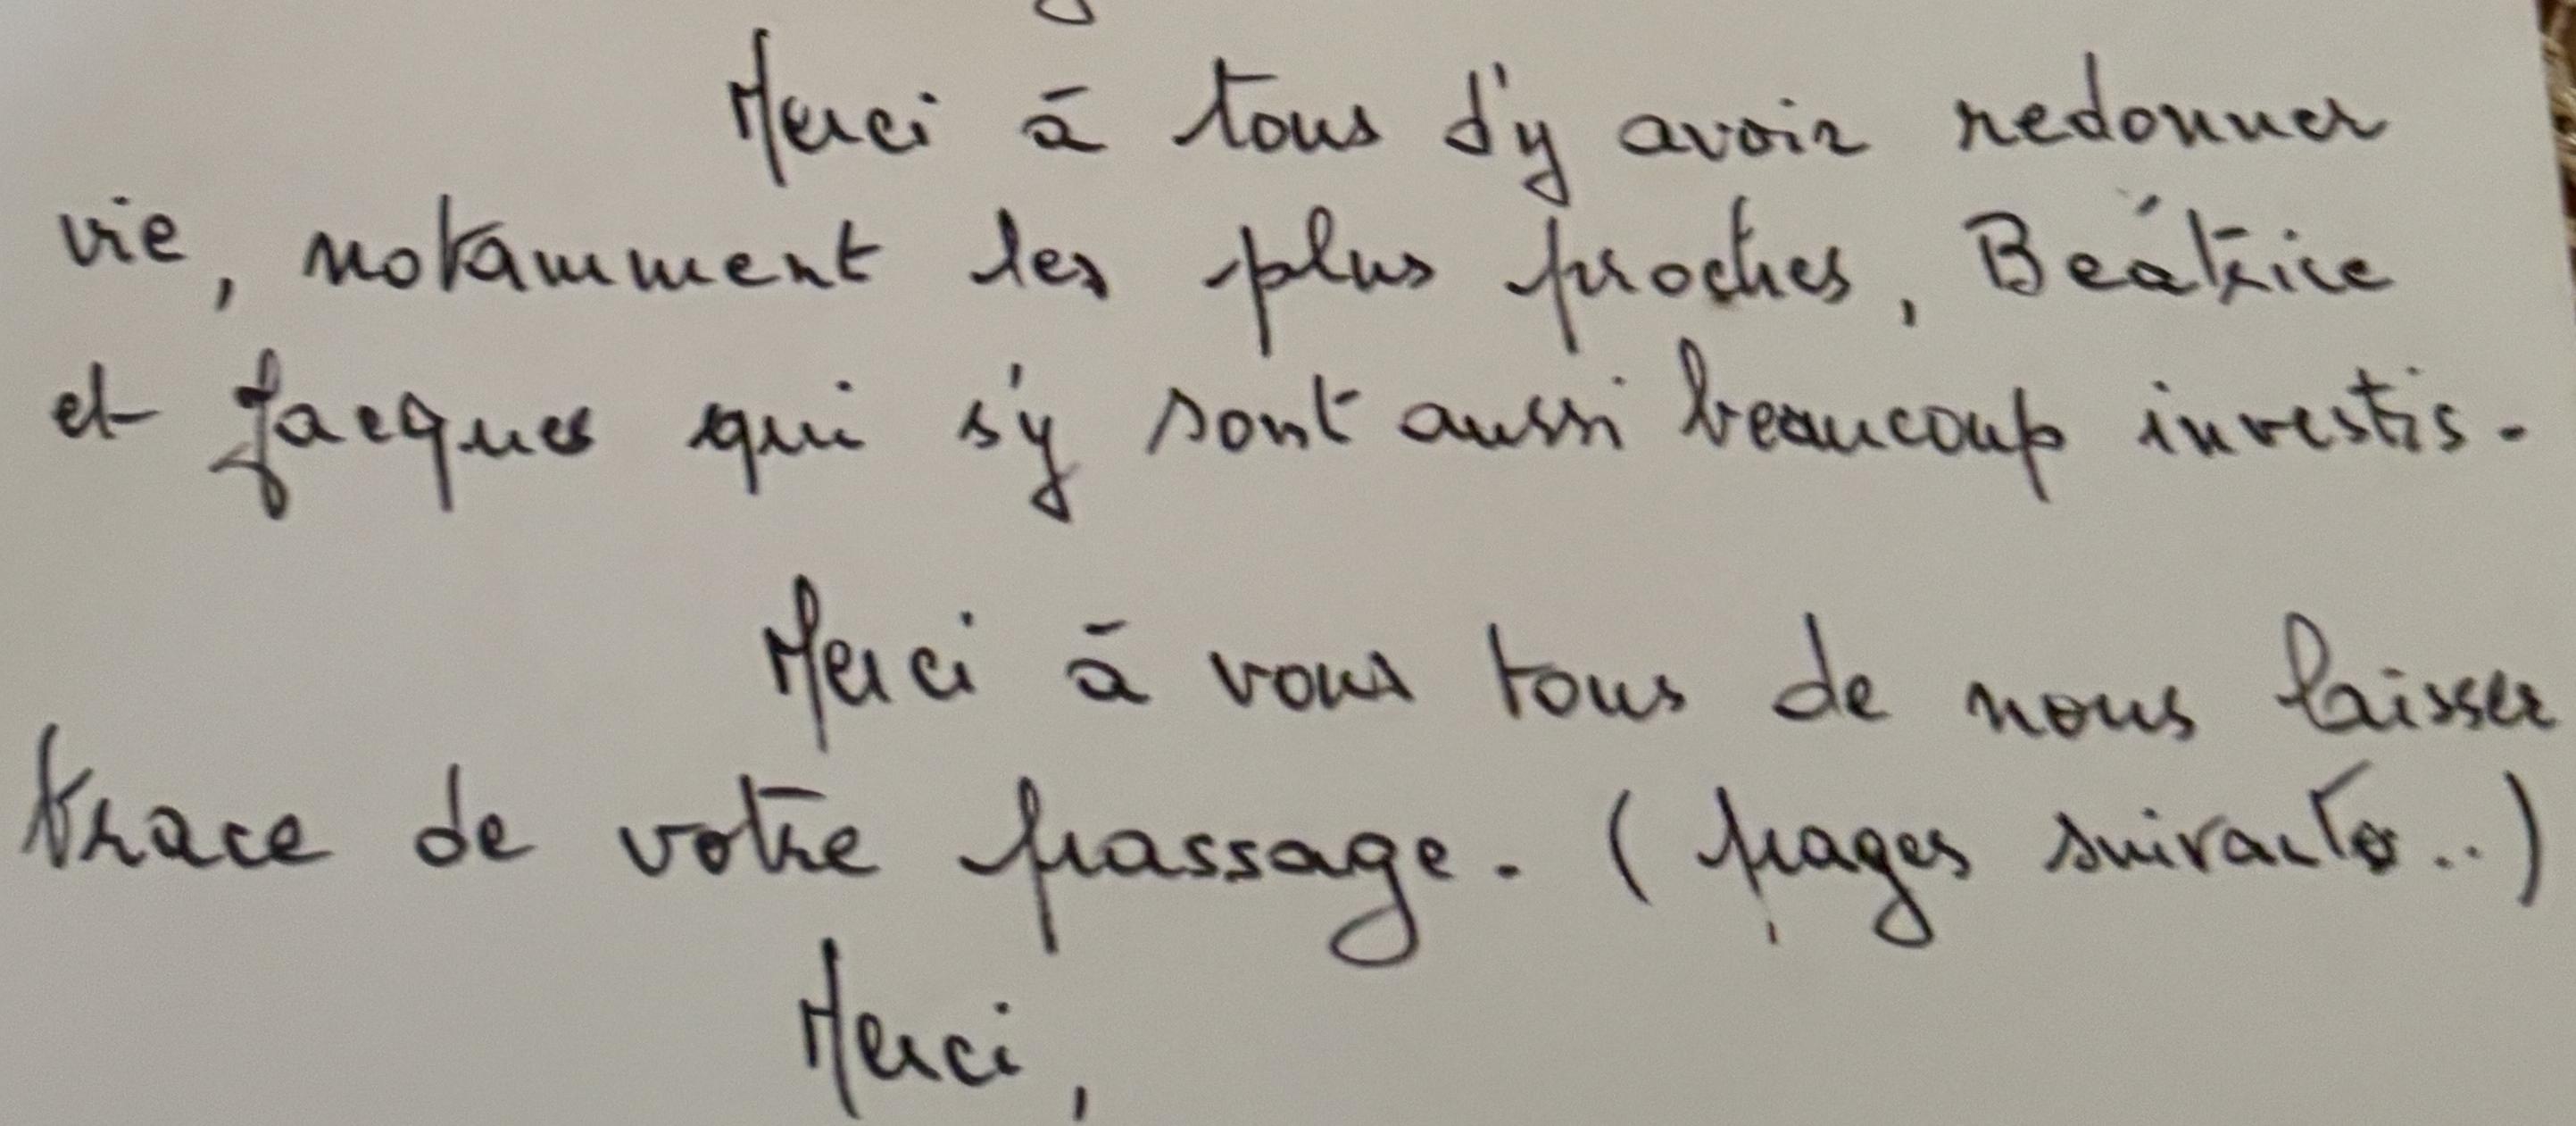 Merci à tous d'y avoir redonner
vie, notamment les plus proches, Béatrice
et Jacques qui s'y sont aussi beaucoup investis.
Merci à vous tous de nous laisser
trace de votre passage. (pages suivantes..)
Merci,